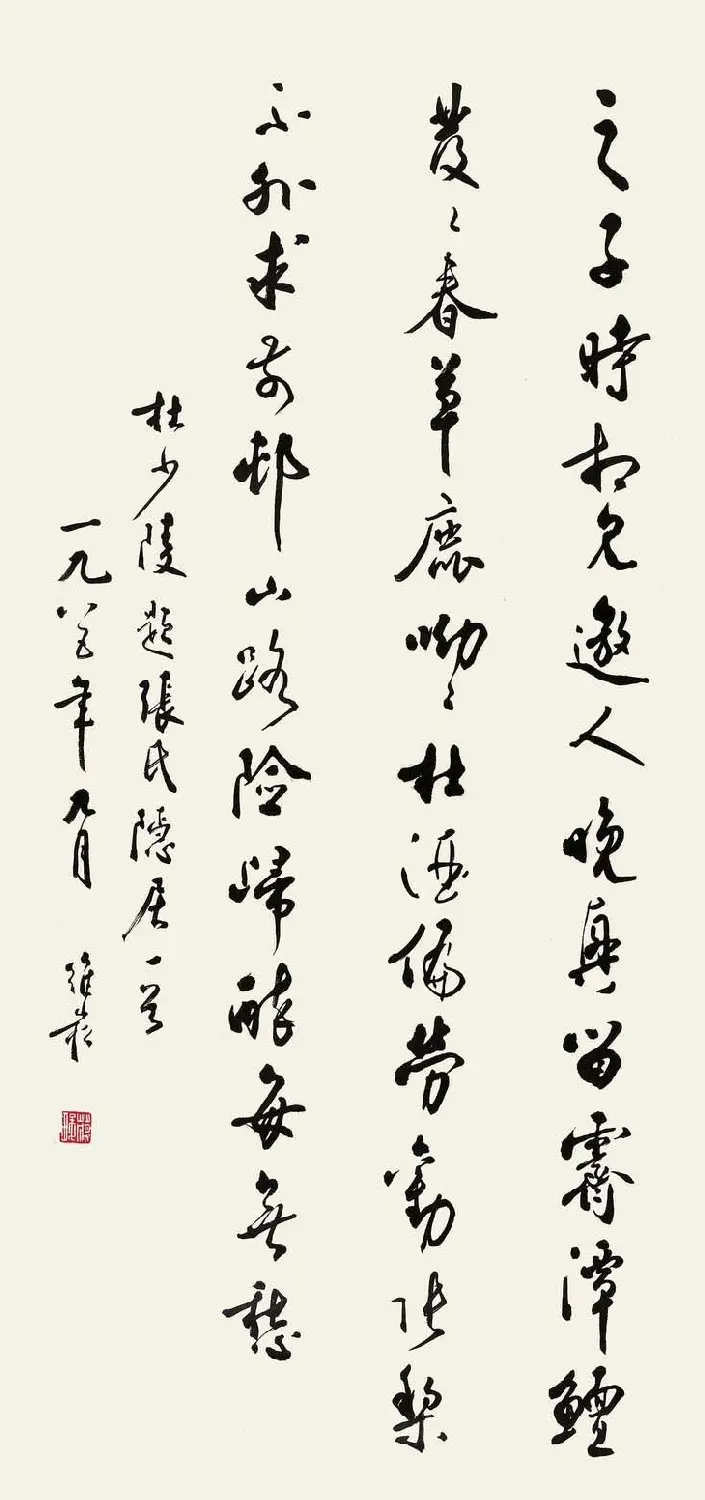 之子時相見邀人晚興留霽潭鱣
發〻春草鹿呦〻杜酒偏勞勸張梨
不外求前邨山路險歸醉每無愁
杜少陵題張氏隱居一首
一九八五年九月 維崧